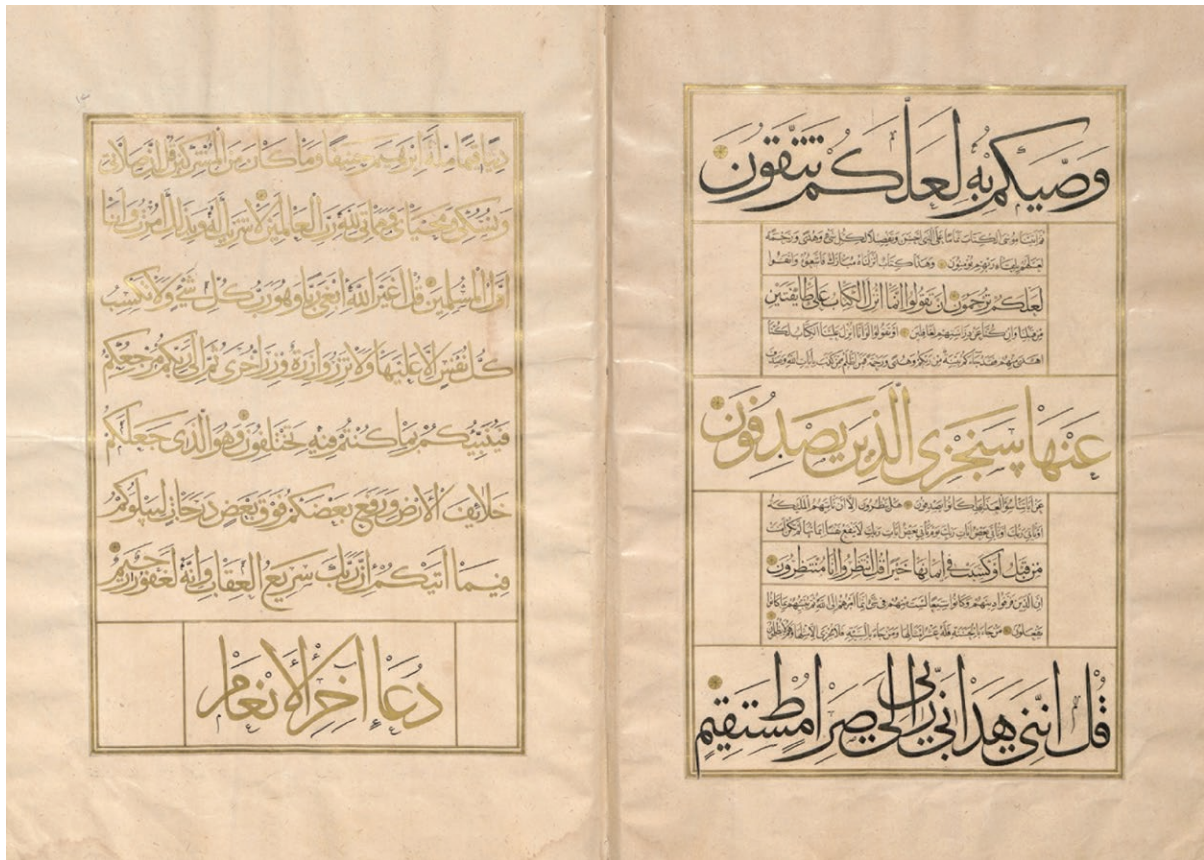 وَصّيٰكُم بِهٖ لَعَلَّكُمْ تَتَّقُونَ
ثم اتينا موسى الكتاب تماما على الذي احسن وتفصيلا لكل شيء وهدى ورحمة
لعلهم بلقاء ربهم يؤمنون وهذا كتاب انزلناه مبارك فاتبعوه واتقوا
لعلكم ترحمون ان تقولوا انما انزل الكتاب على طايفتين
من قبلنا وان كنا عن دراستهم لغافلين او تقولوا لو انا انزل علينا الكتاب لكنا
اهدى منهم فقد جاءكم بينة من ربكم وهدى ورحمة فمن اظلم ممن كذب بايات الله وصدف
عَنْهَا سَنَجْزِى الَّذينَ يَصْدِفُونَ
عن اياتنا سوء العذاب بما كانوا يصدفون هل ينظرون الا ان تاتيهم الملئكة
او ياتي ربك او ياتي بعض ايات ربك يوم ياتي بعض ايات ربك لا ينفع نفسا ايمانها لم تكن امنت
من قبل او كسبت في ايمانها خيرا قل انتظروا انا منتظرون
ان الذين فرقوا دينهم وكانوا شيعا لست منهم في شيء انما امرهم الى الله ثم ينبئهم بما كانوا
يفعلون من جاء بالحسنة فله عشر امثالها ومن جاء بالسيئة فلا يجزى الا مثلها وهم لا يظلمون
قُل اِنَّنى هَدَانى رَبّى اِلى صِرَاطٍ مُسْتَقيمٍ
دينا قيما ملة ابرهيم حنيفا وما كان من المشركين قل ان صلاتي
ونسكي ومحياي ومماتي لله رب العالمين لا شريك له وبذلك امرت وانا
اول المسلمين قل اغير الله ابغي ربا وهو رب كل شيء ولا تكسب
كل نفس الا عليها ولا تزر وازرة وزر اخرى ثم الى ربكم مرجعكم
فينبئكم بما كنتم فيه تختلفون وهو الذي جعلكم
خلائف الارض ورفع بعضكم فوق بعض درجات ليبلوكم
فيما اتيكم ان ربك سريع العقاب وانه لغفور رحيم
دُعَاءْ آخِرْ اَلْاَنْعَامْ